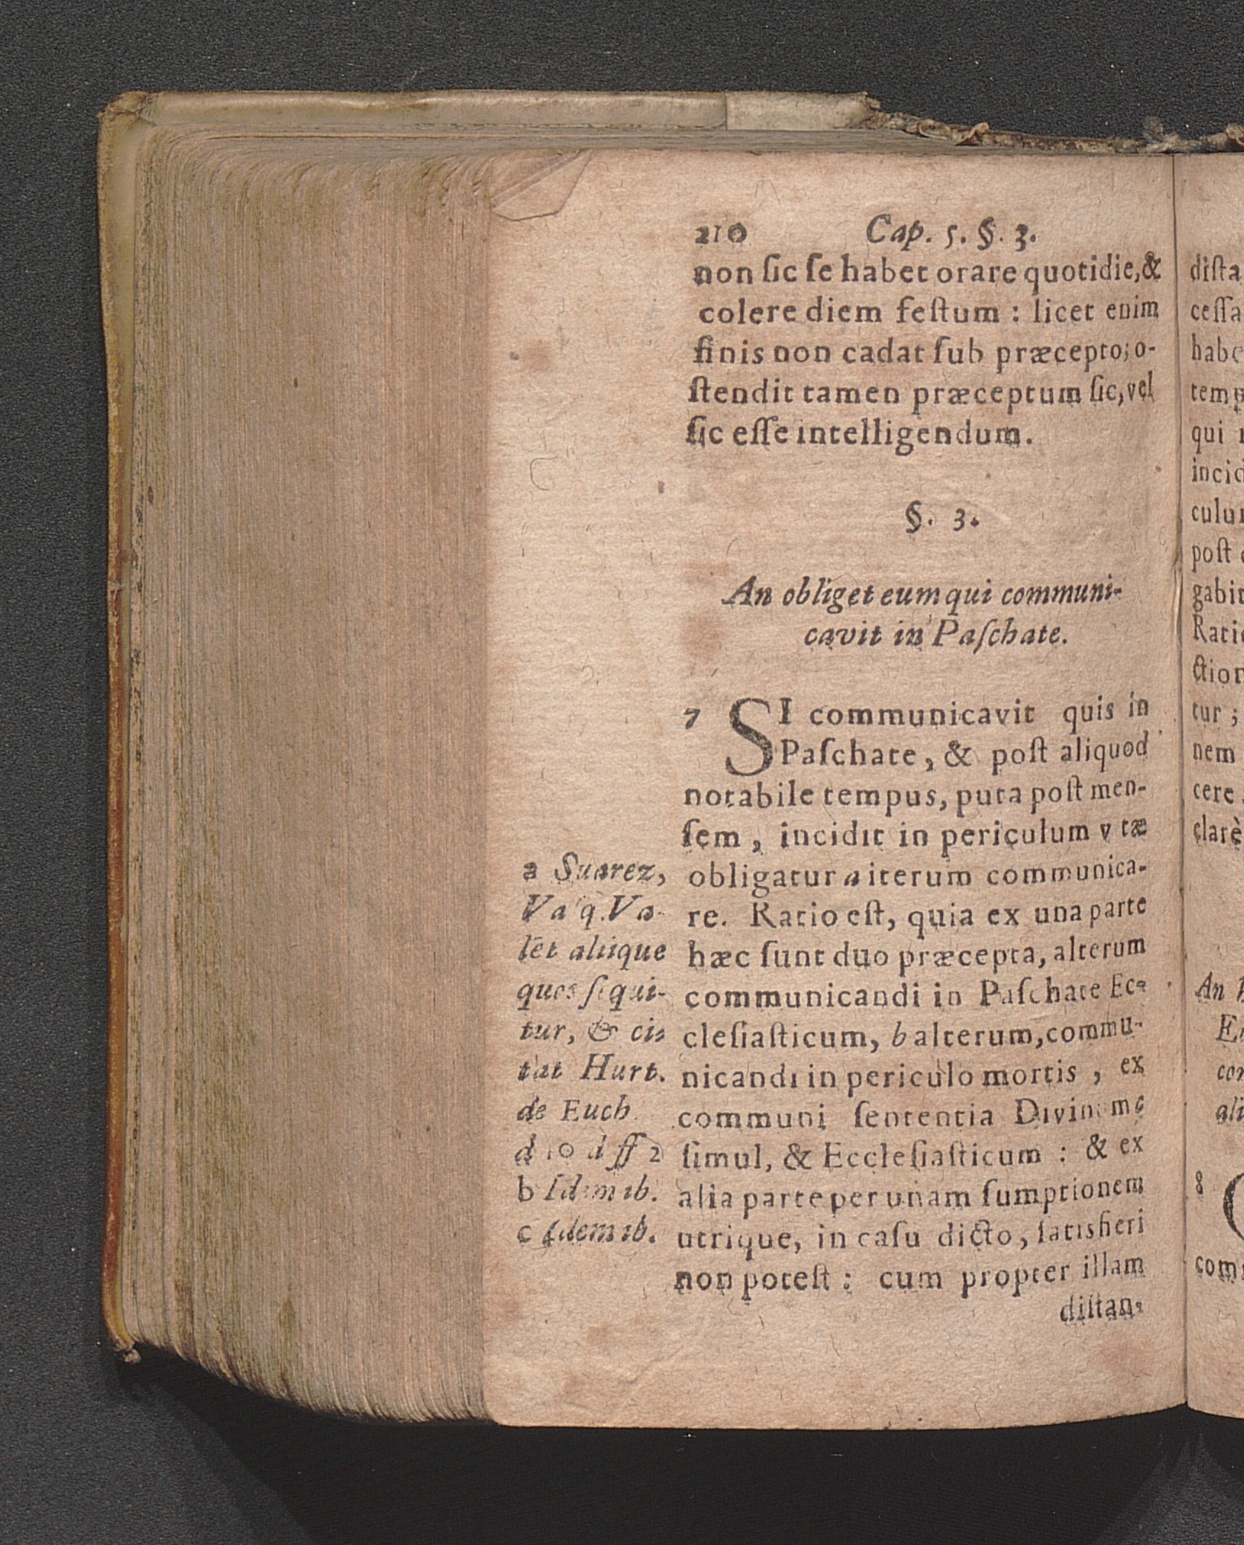 210 Cap. 5. §. 3.
non ſic ſe habet orare quotidie, &
colere diem feſtum : licet enim
finis non cadat ſub præcepto; o-
ſtendit tamen præceptum ſic, vel
ſic eſſe intelligendum.
§. 3.
An obliget eum qui communi-
cavit in Paſchate.
7 SI communicavit quis in
Paſchate, & poſt aliquod
notabile tempus, puta poſt men-
ſem, incidit in periculum vtæ
obligatur a iterum communica-
re. Ratio eſt, quia ex una parte
hæc ſunt duo præcepta, alterum
communicandi in Paſchate Ec-
cleſiaſticum, b alterum, commu-
nicandi in periculo mortis, ex
communi ſententia Divinum
ſimul, & Eccleſiaſticum : & ex
alia parte per unam ſumptionem
utrique, in caſu dicto, ſatisfieri
non poteſt : cum propter illam
diſtan-
a Suarez,
Vaſq. Va-
lēt aliique
quos ſequi-
tur, & ci-
tat Hurt.
de Euch
d 10 diff 2
b Idem ib.
c Idem ib.
diſta
ceſſa
habe
temp
qui
incid
culu
poſt
gabit
Ratio
ction
tur ;
nem
cere
clarè
An
E
con
ali
8
com